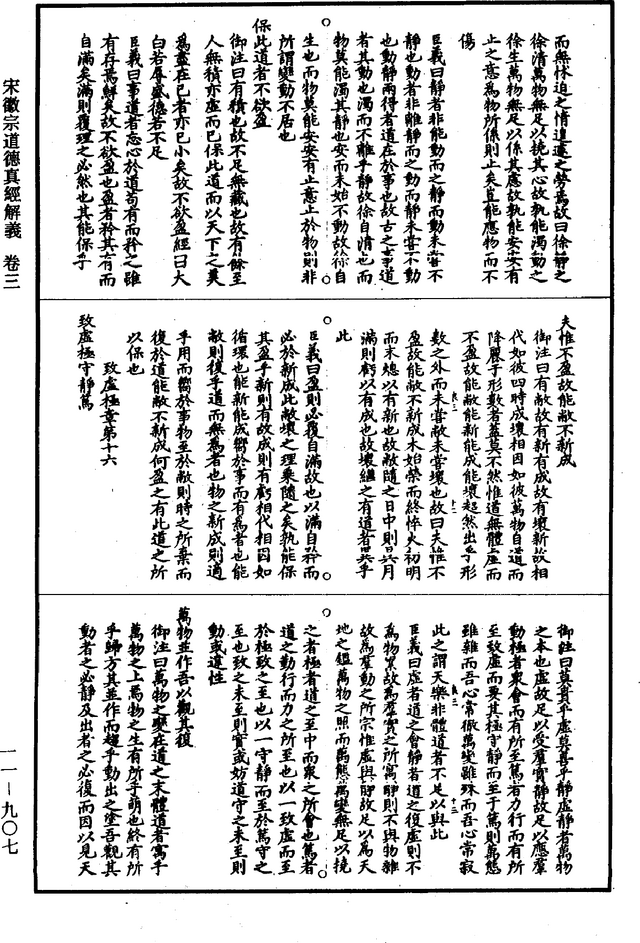 宋徽宗道德真經解義　卷三
一一—九〇七
而無怵迫之情遑遽之勞焉故曰徐靜之
徐清萬物無足以撓其心故孰能濁動之
徐生萬物無足以係其慮故孰能安安有
止之意為物所係則止矣豈能應物而不
傷
臣義曰靜者非能動而之靜而動未嘗不
靜也動者非離靜而之動而靜未嘗不動
也動靜兩得者道在於事也故古之事道
者其動也濁而不離乎靜故徐自清也而
物莫能濁其靜也安而未始不動故徐自
生也而物莫能安安有止意止於物則非
所謂變動不居也
保此道者不欲盈
御注曰有積也故不足無藏也故有餘至
人無積亦虛而已保此道而以天下之美
為盡在已者亦已小矣故不欲盈經曰大
白若辱盛德若不足
臣義曰事道者忘心於道苟有而矜之雖
有存焉鮮矣故不欲盈也盈者矜其有而
自滿矣滿則覆理之必然也其能保乎
夫惟不盈故能敝不新成
御注曰有敝故有新有成故有壞新故相
代如彼四時成壞相因如彼萬物自道而
降麗于形數者蓋莫不然惟道無體虛而
不盈故能敝能新能成能壞超然出乎形
數之外而未嘗敝未嘗壞也故曰夫惟不
盈故能敝不新成木始榮而終悴火初明
而末熄以有新也故敝隨之日中則昃月
滿則虧以有成也故壞繼之有道者異乎
此
臣義曰盈則必覆自滿故也以滿自矜而
必於新成此敝壞之理乘隨之矣孰能保
其盈乎新則有故成則有虧相代相因如
循環也能新能成嚮於事而有為者也能
敝則復乎道而無為者也物之新成則適
乎用而嚮於事物至於敝則時之所棄而
復於道能敝不新成何盈之有此道之所
以保也
致虛極章第十六
致虛極守靜篤
御註曰莫貴乎虛莫善乎靜虛靜者萬物
之本也虛故足以受羣實靜故足以應羣
動極者衆會而有所至篤者力行而有所
至致虛而要其極守靜而至于篤則萬態
雖雜而吾心常徹萬變雖殊而吾心常寂
此之謂天樂非體道者不足以與此
臣義曰虛者道之會靜者道之復虛則不
為物累故為羣實之所寓靜則不與物雜
故為羣動之所宗惟虛與靜故足以為天
地之鑑萬物之照而萬態萬變無足以撓
之者極者道之至中而衆之所會也篤者
道之勤行而力之所至也以一致虛而至
於極致之至也以一守靜而至於篤守之
至也致之未至則實或妨道守之未至則
動或違性
萬物並作吾以觀其復
御注曰萬物之變在道之末體道者寓乎
萬物之上焉物之生有所乎萌也終有所
乎歸方其並作而趨乎動出之塗吾觀其
動者之必靜及出者之必復而因以見天